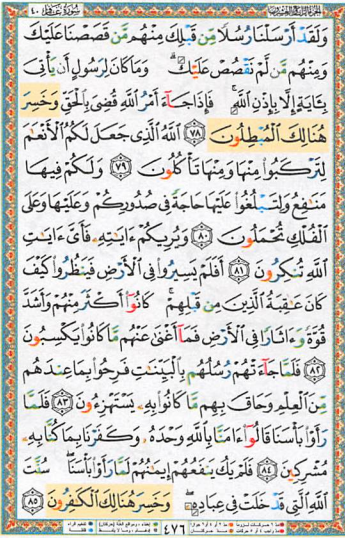 سُورَةُ غَافِرٍ ٤٠
وَلَقَدْ أَرْسَلْنَا رُسُلًا مِّن قَبْلِكَ مِنْهُم مَّن قَصَصْنَا عَلَيْكَ
وَمِنْهُم مَّن لَّمْ نَقْصُصْ عَلَيْكَ ۗ وَمَا كَانَ لِرَسُولٍ أَن يَأْتِيَ
بِـَٔايَةٍ إِلَّا بِإِذْنِ ٱللَّهِ ۚ فَإِذَا جَآءَ أَمْرُ ٱللَّهِ قُضِيَ بِٱلْحَقِّ وَخَسِرَ
هُنَالِكَ ٱلْمُبْطِلُونَ ٧٨ ٱللَّهُ ٱلَّذِى جَعَلَ لَكُمُ ٱلْأَنْعَٰمَ
لِتَرْكَبُوا۟ مِنْهَا وَمِنْهَا تَأْكُلُونَ ٧٩ وَلَكُمْ فِيهَا
مَنَٰفِعُ وَلِتَبْلُغُوا۟ عَلَيْهَا حَاجَةً فِى صُدُورِكُمْ وَعَلَيْهَا وَعَلَى
ٱلْفُلْكِ تُحْمَلُونَ ٨٠ وَيُرِيكُمْ ءَايَٰتِهِۦ فَأَىَّ ءَايَٰتِ
ٱللَّهِ تُنكِرُونَ ٨١ أَفَلَمْ يَسِيرُوا۟ فِى ٱلْأَرْضِ فَيَنظُرُوا۟ كَيْفَ
كَانَ عَٰقِبَةُ ٱلَّذِينَ مِن قَبْلِهِمْ ۚ كَانُوٓا۟ أَكْثَرَ مِنْهُمْ وَأَشَدَّ
قُوَّةً وَءَاثَارًا فِى ٱلْأَرْضِ فَمَآ أَغْنَىٰ عَنْهُم مَّا كَانُوا۟ يَكْسِبُونَ
٨٢ فَلَمَّا جَآءَتْهُمْ رُسُلُهُم بِٱلْبَيِّنَٰتِ فَرِحُوا۟ بِمَا عِندَهُم
مِّنَ ٱلْعِلْمِ وَحَاقَ بِهِم مَّا كَانُوا۟ بِهِۦ يَسْتَهْزِءُونَ ٨٣ فَلَمَّا
رَأَوْا۟ بَأْسَنَا قَالُوٓا۟ ءَامَنَّا بِٱللَّهِ وَحْدَهُۥ وَكَفَرْنَا بِمَا كُنَّا بِهِۦ
مُشْرِكِينَ ٨٤ فَلَمْ يَكُ يَنفَعُهُمْ إِيمَٰنُهُمْ لَمَّا رَأَوْا۟ بَأْسَنَا ۖ سُنَّتَ
ٱللَّهِ ٱلَّتِى قَدْ خَلَتْ فِى عِبَادِهِۦ ۖ وَخَسِرَ هُنَالِكَ ٱلْكَٰفِرُونَ ٨٥
٤٧٦